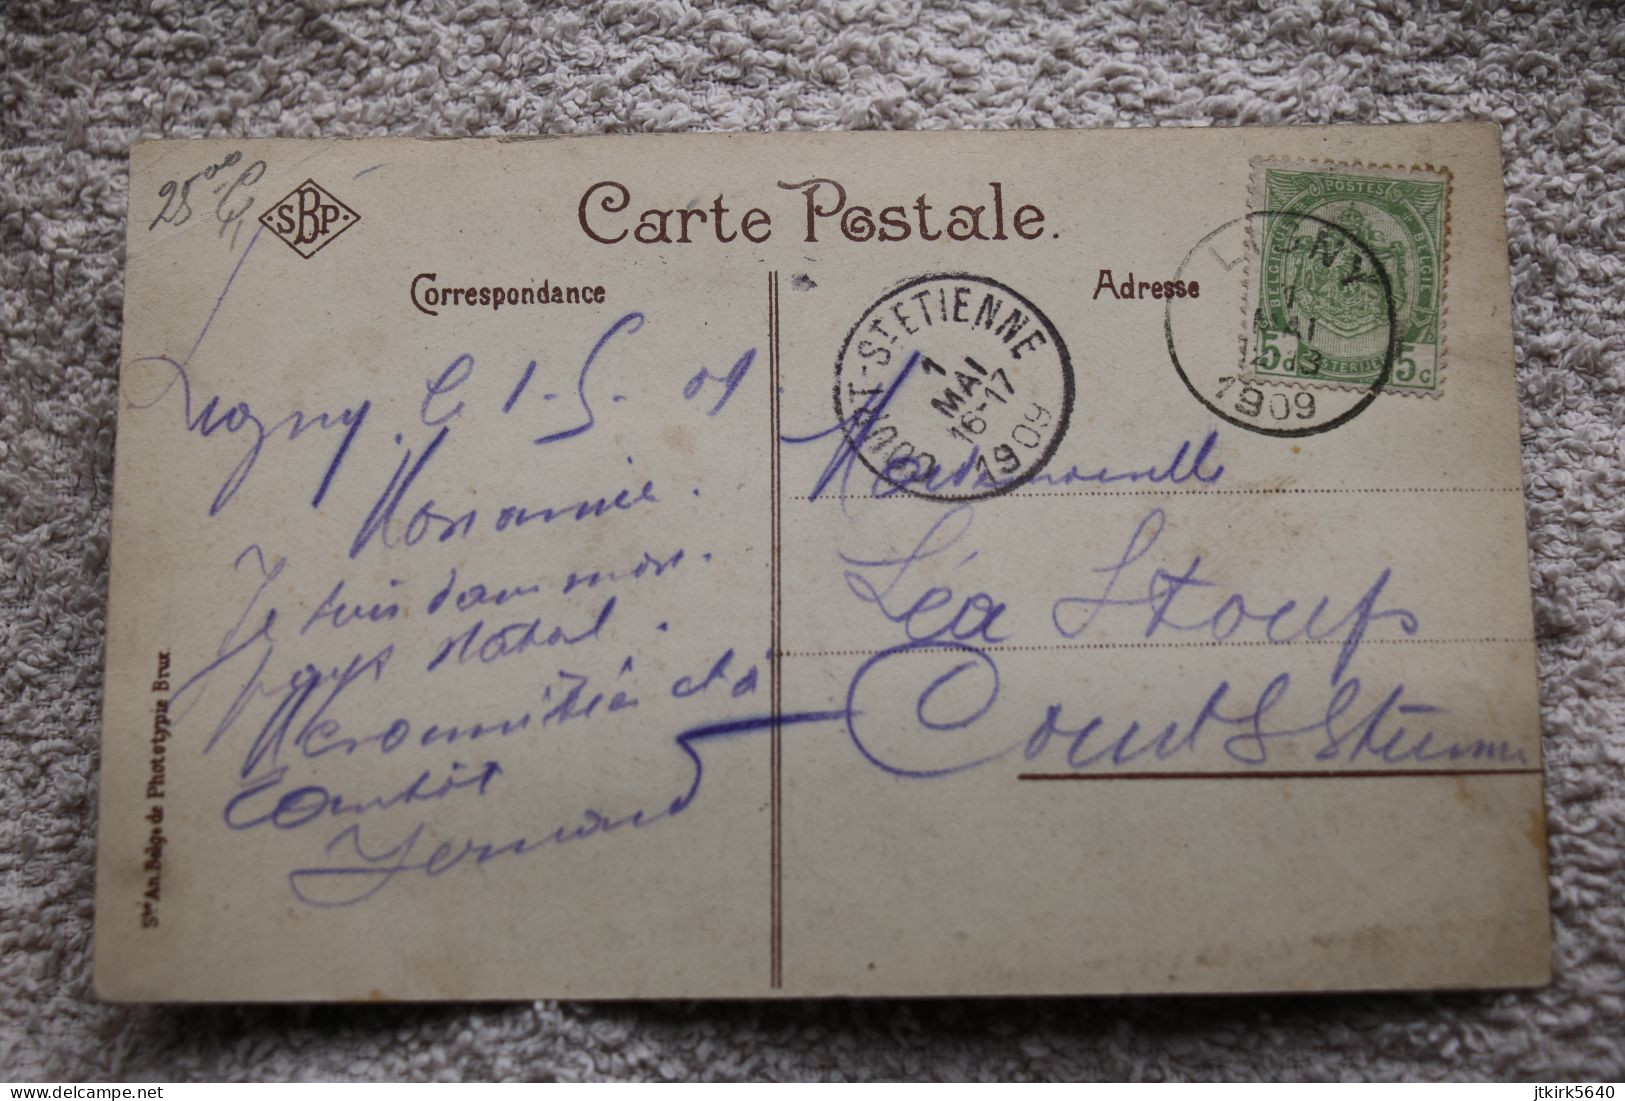 25
SBP
Carte Postale.
Correspondance
Adresse
POSTES
BELGIQUE
BELGIE
5c 5c
LIGNY
1
MAI
12-13
1909
COURT-ST-ETIENNE
1
MAI
16-17
1909
Ligny, le 1-5-09.
Mon amie.
Je suis dans mon.
pays natal.
et à
tantôt
Fernand
Mademoiselle
Léa Stoufs
Court S Etienne
Sté An. Belge de Phototypie Brux
delcampe.net
jtkirk5640